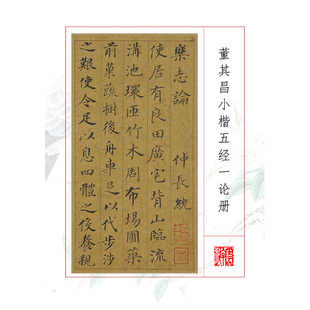 董其昌小楷五经一论册
樂志論 仲長統
使居有良田廣宅背山臨流
溝池環匝竹木周布場圃築
前菓蔬樹後舟車足以代步涉
之艱使令足以息四體之役養親